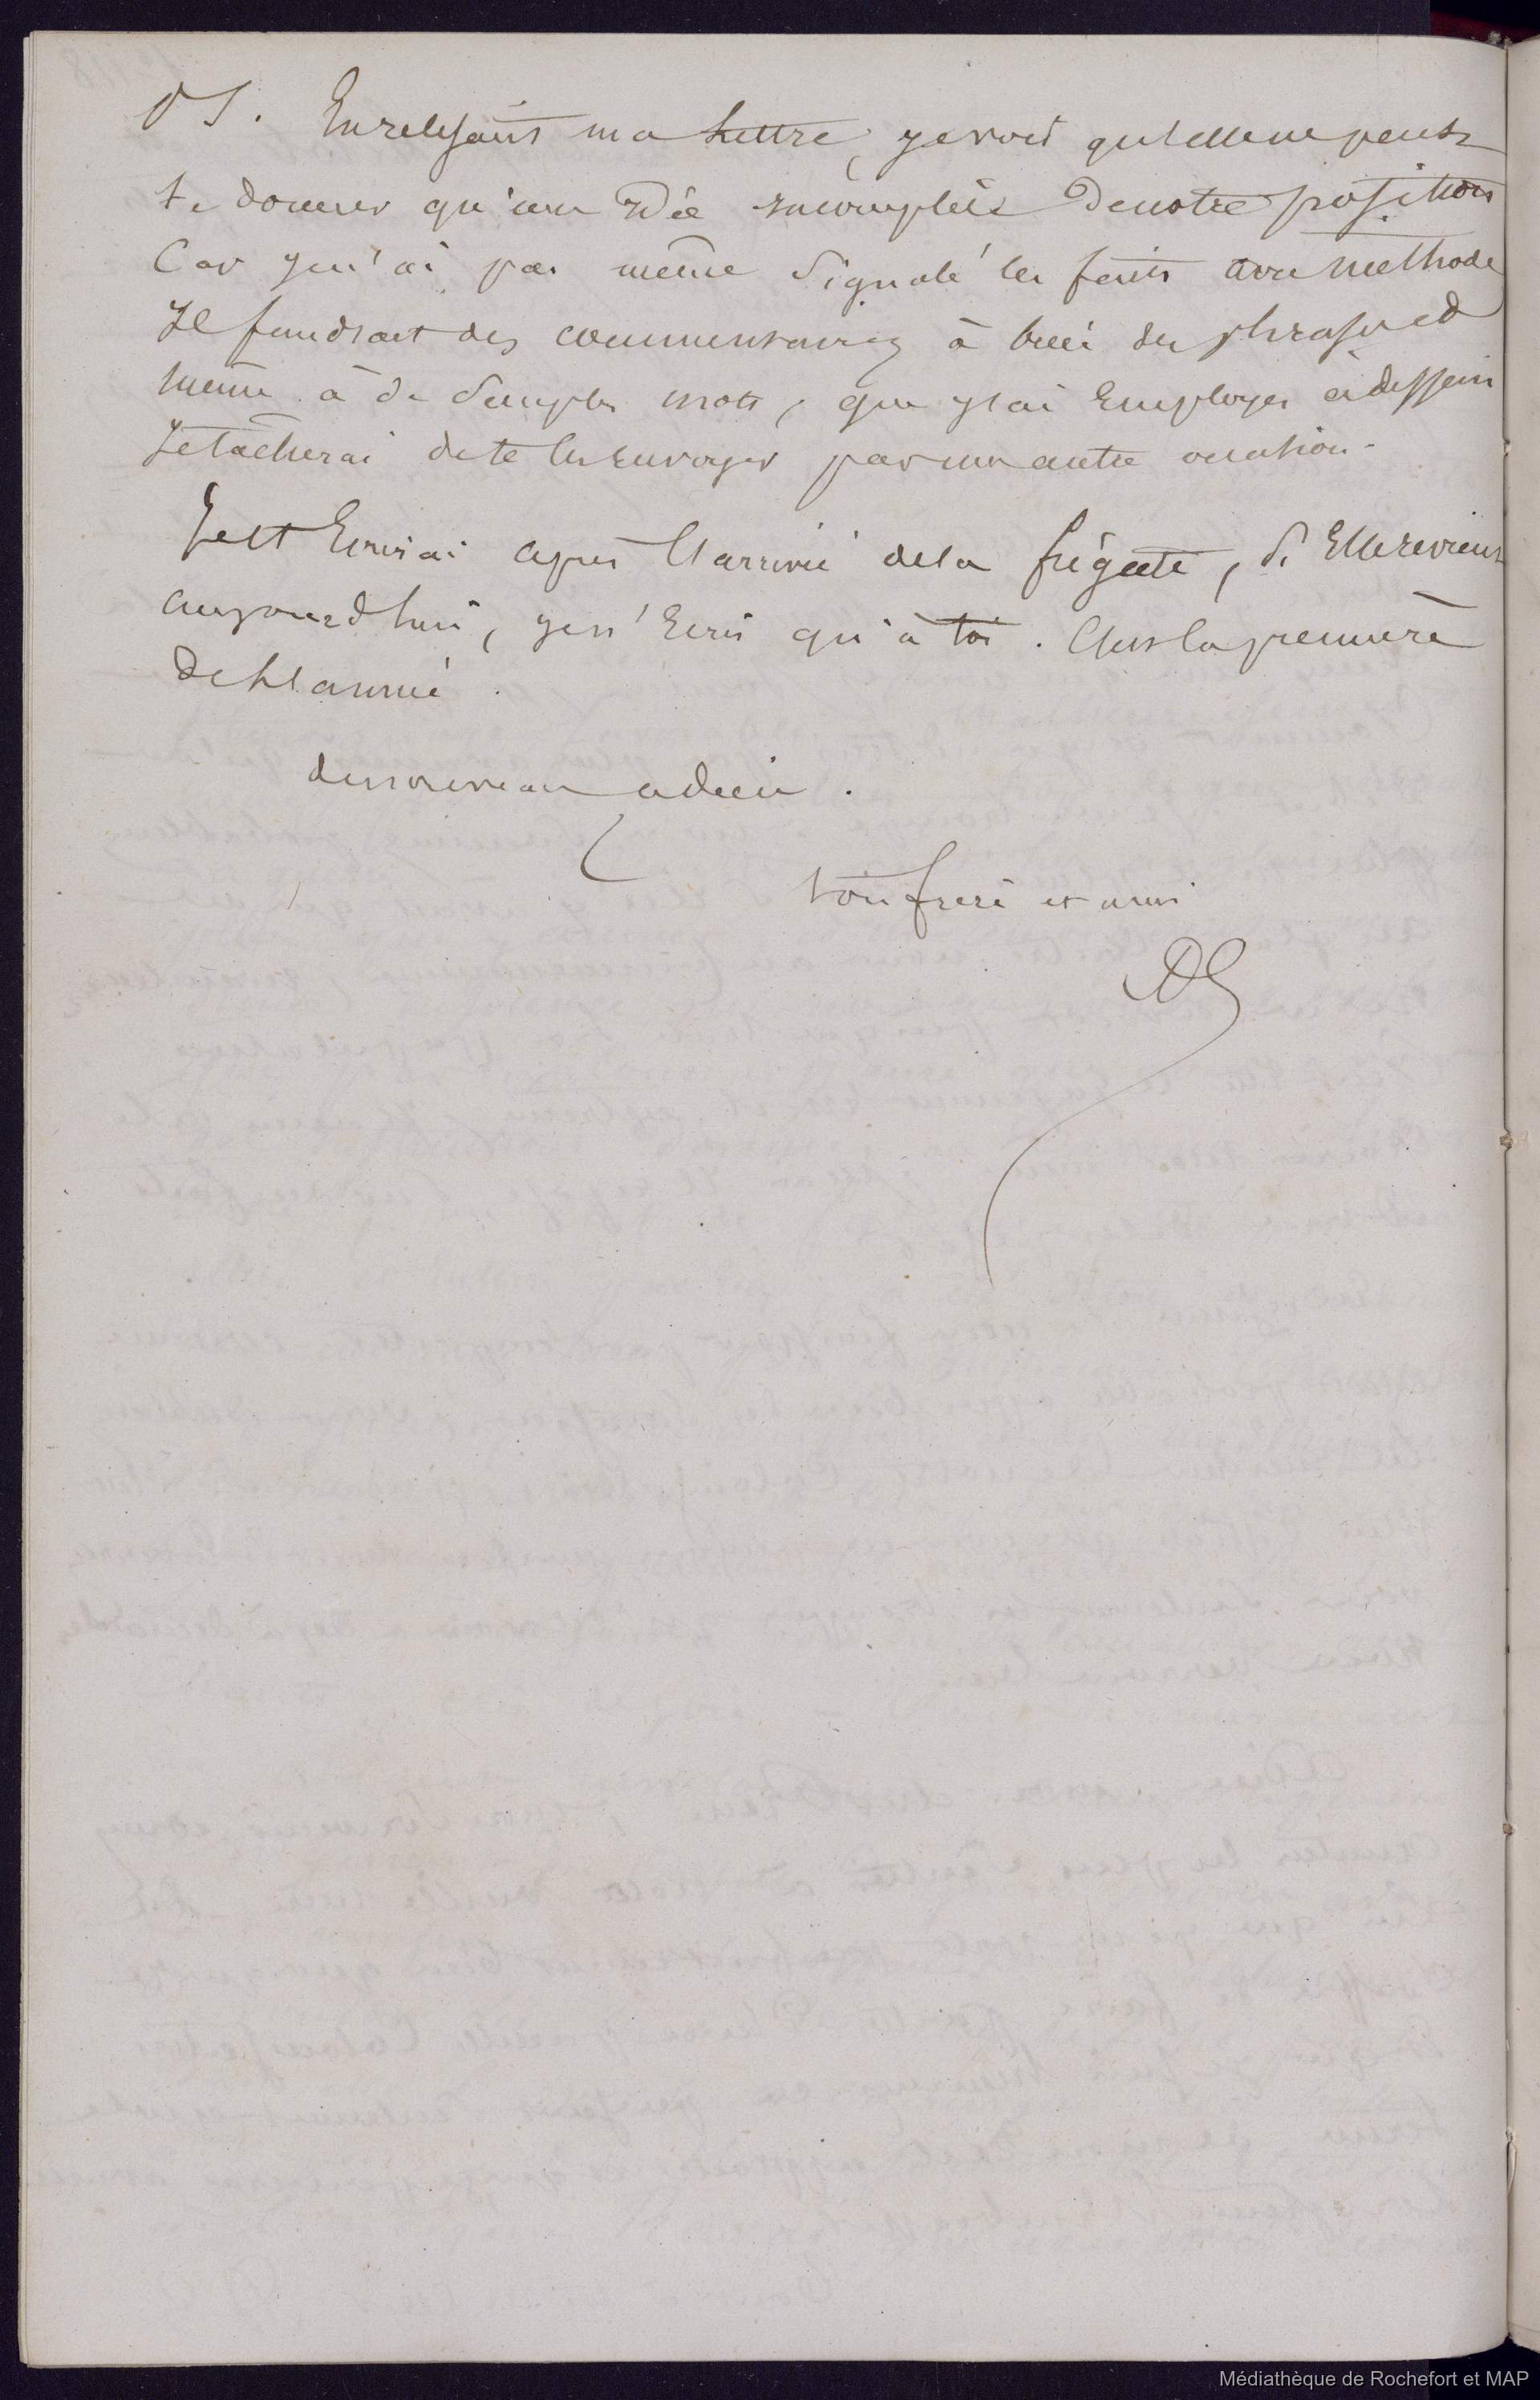 PS. En relisant ma lettre, je vois qu'elle ne peut
te donner qu'une idée incomplète de notre position
Car je n'ai pas même signalé les faits avec méthode
Il faudrait des commentaires à des phrases et
même à de simples mots, que j'ai employés à dessein
Je tâcherai de te les envoyer par une autre occasion.
Je t'écrirai après l'arrivée de la frégate, si Elle revient
aujourd'hui, je n'écris qu'à toi. C'est la première
de l'année.
de nouveau adieu.
ton frère et ami
Médiathèque de Rochefort et MAP